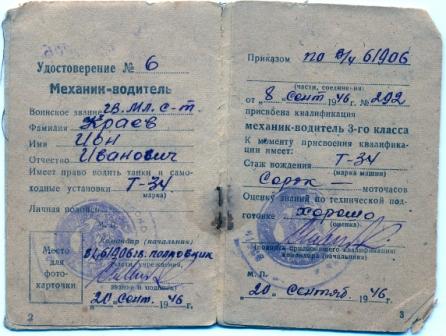 Удостоверение № 6
Механик-водитель
Воинское звание гв. мл. с-т.
Фамилия Краев
Имя Иван
Отчество Иванович
Имеет право водить танки и само-
ходные установки Т-34
(марка)
Личная подпись
М. П.
Место
для
фото-
карточки
Командир (начальник)
в/ч 61906 гв. полковник
(части, учреждения,
звание и подпись)
20 сент. 1946 г.
2
Приказом по в/ч 61906
(части, соедине-ия)
от 8 сент 1946 г. № 292
присвоена квалификация
механик-водитель 3-го класса
К моменту присвоения квалифика-
ции имеет:
Стаж вождения Т-34
(марка машин)
Сорок — моточасов
Оценку знаний по технической под-
готовке хорошо
(оценка)
М. П.
20 сентяб 1946
3